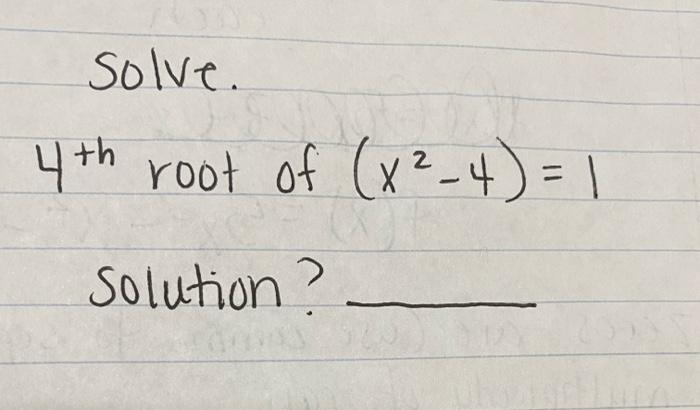 Solve.
4th root of (x²-4) = 1
Solution? ______